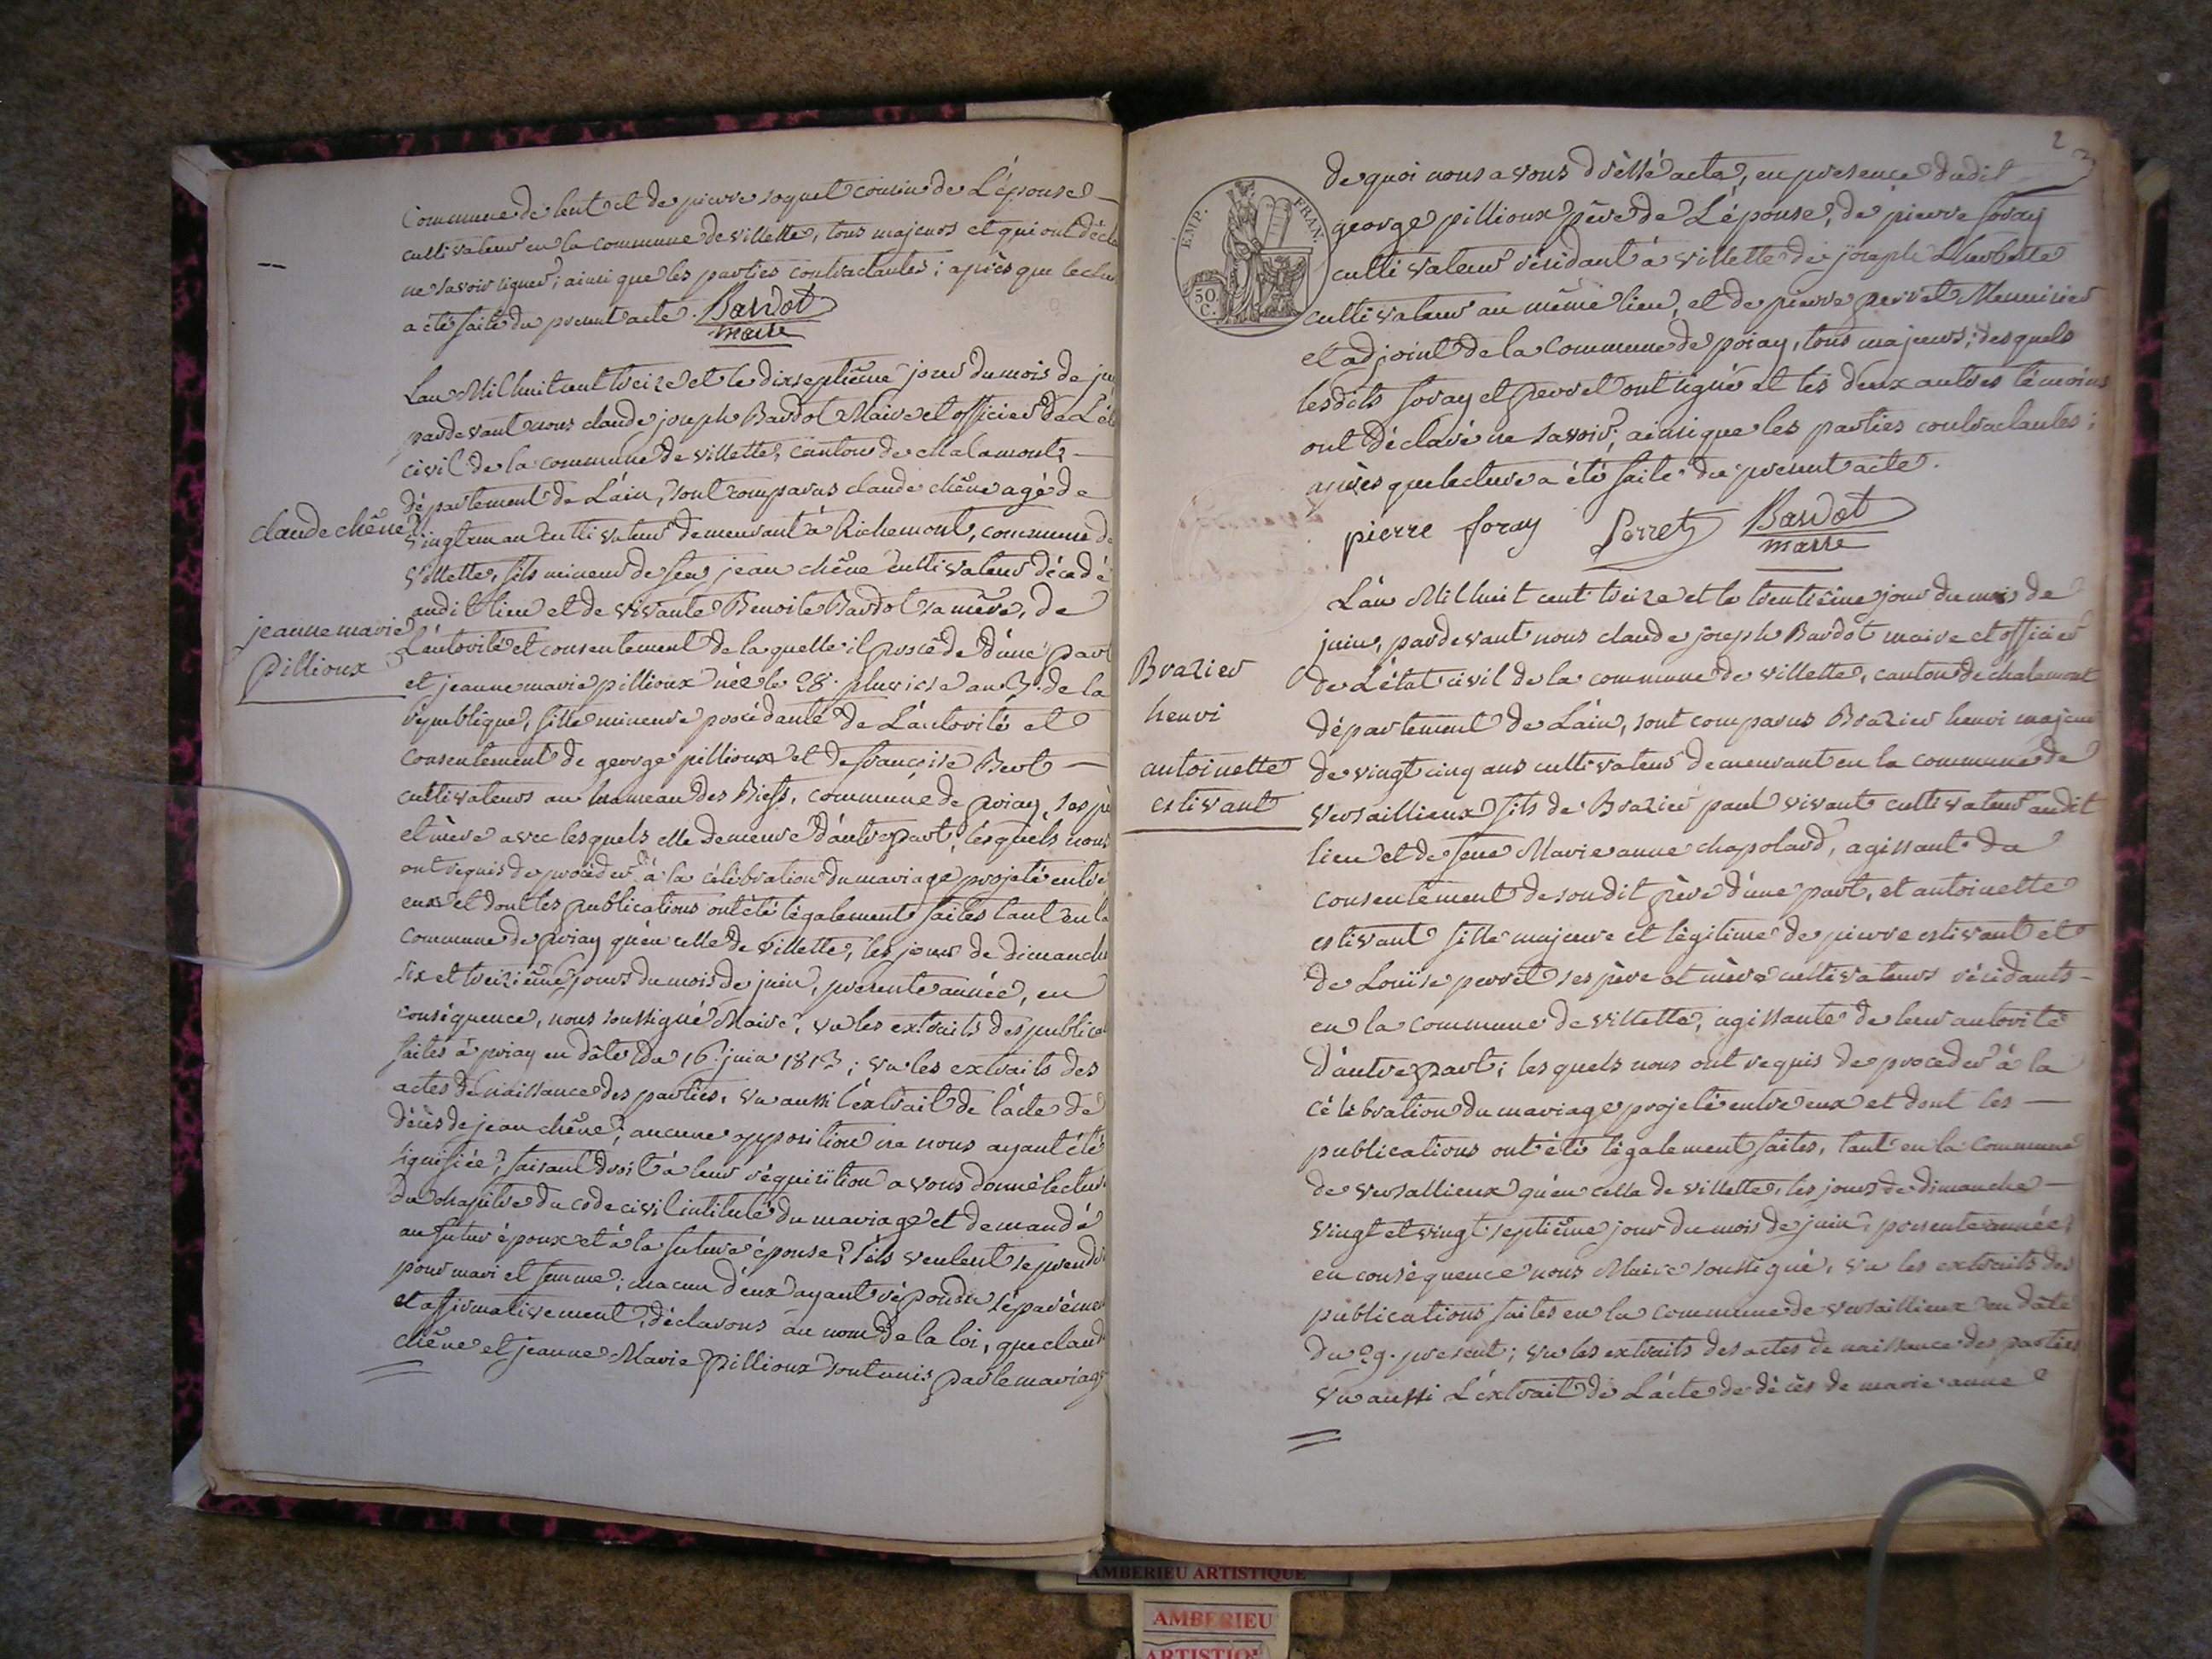 commune de lent et de pierre soquet cousin de L'épouse
cultivateur en la commune de villette, tous majeurs et qui ont décla
ne savoir signer; ainsi que les parties contractantes; après que lectur
a été faite du present acte. Bardot
maire
Lan Mil huit cent treize et le dixseptième jour du mois de ju
pardevant nous claude joseph Bardot Maire et officier de L'ét
civil de la commune de villette, canton de chalamont,
département de L'ain, sont comparus claude chêne agé de
claude chêne
vingt un an cultivateur demeurant à Richemont, commune de
villette, fils mineur de feu jean chêne cultivateur décédé
audit lieu et de vivante Benoite Bardot sa mère, de
jeanne marie
pillioux
L'autorité et consentement de laquelle il procède d'une part
et jeanne marie pillioux née le 28. pluviose an 3e. de la
république, fille mineure procédante de L'autorité et
consentement de george pillioux et de françoise Bert
cultivateurs au hameau des Biefs, commune de priay, ses pè
et mère avec lesquels elle demeure d'autre part, lesquels nous
ont requis de procéder à la célébration du mariage projeté entre
eux et dont les publications ont été légalement faites tant en la
commune de priay qu'en celle de villette, les jours de dimanche
six et treizième jours du mois de juin, presente année, en
conséquence, nous soussigné Maire, vu les extraits des publica
faites à priay en dâte du 16. juin 1813; vu les extraits des
actes de naissance des parties, vu aussi l'extrait de l'acte de
décès de jean chêne; aucune opposition ne nous ayant été
signifiée; faisant droit à leur réquisition avons donné lectur
du chapitre du code civil intitulé du mariage et demandé
au futur époux et à la future épouse, s'ils veulent se prendre
pour mari et femme; chacun d'eux ayant répondu séparémen
et affirmativement, déclarons au nom de la loi, que claude
chêne et jeanne Marie pillioux sont unis par le mariage
2
de quoi nous avons dressé acte, en presence dudit
EMP. FRAN.
50
C.
george pillioux père de L'épouse, de pierre foray
cultivateur résidant à villette de joseph Lherbette
cultivateur au même lieu, et de pierre perret Menuisier
et adjoint de la commune de priay, tous majeurs; desquels
lesdits foray et perret ont signé et les deux autres témoins
ont déclaré ne savoir; ainsi que les parties contractantes;
après que lecture a été faite du present acte.
pierre foray Perret Bardot
maire
L'an Mil huit cent treize et le trentième jour du mois de
juin, pardevant nous claude joseph Bardot maire et officier
Brazier
henri
antoinette
estivant
de L'état civil de la commune de villette, canton de chalamont
département de L'ain, sont comparus Brazier henri majeur
de vingt cinq ans cultivateur demeurant en la commune de
versaillieux fils de Brazier paul vivant cultivateur audit
lieu et de feue Marie anne chapolard, agissant du
consentement de sondit père d'une part, et antoinette
estivant fille majeure et légitime de pierre estivant et
de Louise perret ses père et mère cultivateurs résidants
en la commune de villette, agissante de leur autorité
d'autre part; lesquels nous ont requis de proceder à la
célébration du mariage projeté entre eux et dont les
publications ont été légalement faites, tant en la commune
de versallieux qu'en celle de villette, les jours de dimanche
vingt et vingt septième jour du mois de juin, presente année,
en conséquence nous Maire soussigné, vu les extraits des
publications faites en la commune de versaillieux en dâte
du 29. present; vu les extraits des actes de naissance des parties
vu aussi L'extrait de L'acte de décès de marie anne
AMBERIEU ARTISTIQUE
AMBERIEU
ARTISTIQUE